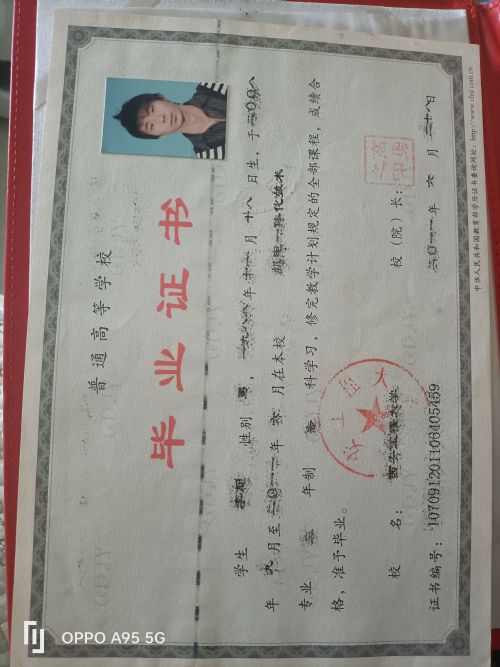 普通高等学校
毕业证书
学生 性别 男，一九八六年十一月廿八日生，于二〇〇八
年 九 月至 二〇一一 年 六 月在本校
专业 三 年制 科学习，修完教学计划规定的全部课程，成绩合
格，准予毕业。
校 名： 西安工程大学 校（院）长：
证书编号：107091201106405459 二〇一一年 六 月 日
中华人民共和国教育部学历证书查询网址：http://www.chsi.com.cn
OPPO A95 5G